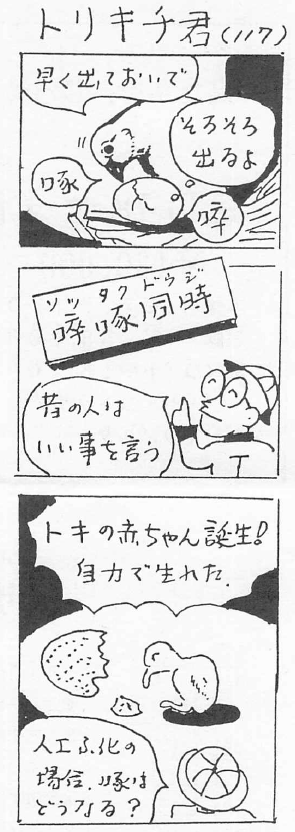 トリキチ君(117)
早く出ておいで
そろそろ
出るよ
啄
啐
ソッ タク ドウジ
啐啄同時
昔の人は
いい事を言う
T
トキの赤ちゃん誕生!
自力で生れた.
人工ふ化の
場合、啄は
どうなる?